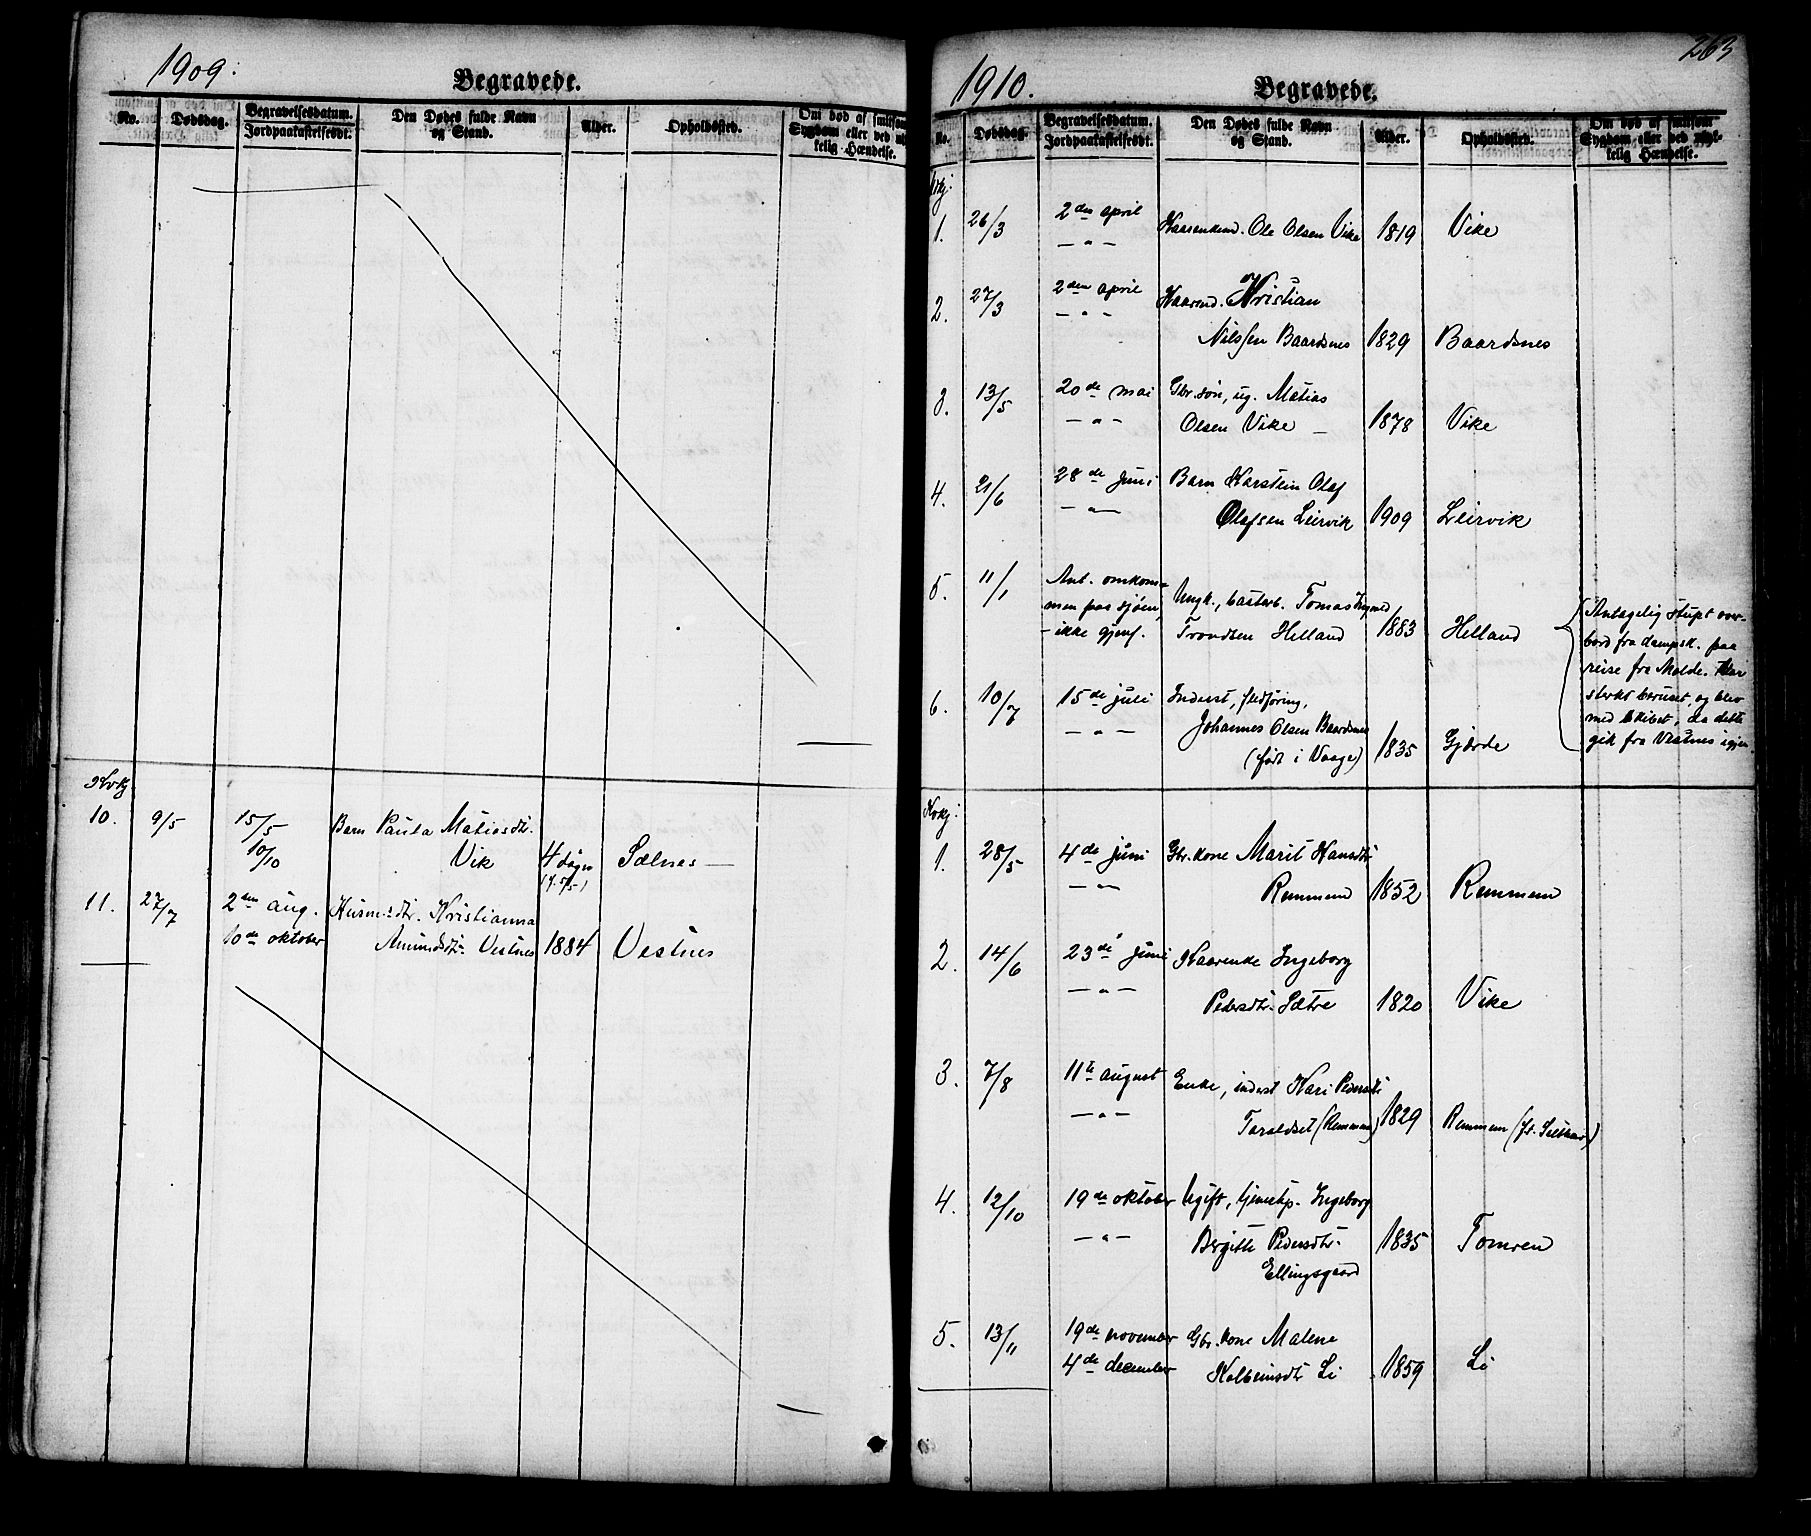 1909.
Begravede.
No.
Dødsdag.
Begravelsesdatum.
Jordpaakastelsesdt.
Den Dødes fulde Navn
og Stand.
Alder.
Opholdssted.
Om død af smitsom
Sygdom eller ved
kelig Hændelse.
Kvkj.
10. 9/5 15/5 Barn Paula Matiasdtr.
10/10 Vik 4 dager Sælnes —
11. 27/7 2den aug. Husm.dtr. Kristianna
10de oktober Amundsdtr. Vestnes 1884 Vestnes
263
1910.
Begravede.
No.
Dødsdag.
Begravelsesdatum.
Jordpaakastelsesdt.
Den Dødes fulde Navn
og Stand.
Alder.
Opholdssted.
Om død af smitsom
Sygdom eller ved ulyk-
kelig Hændelse.
1. 26/3 2den april Ole Olsen Vike 1819 Vike
— " —
2. 27/3 2den april Kaarend. Kristian
— " —
Nilssen Baardsnes 1829 Baardsnes
3. 13/5 20de mai Gbr.søn, ug. Matias
— " — Olsen Vike — 1878 Vike
4. 21/6 28de juni Barn Karstein Olaf
— " — Olafsen Leirvik 1909 Leirvik
5. 11/1 Ant. omkom-
men paa sjøen, Ungk., Tomas
ikke gjenf. Trondsen Helland 1883 Helland
Antagelig stupt over-
bord fra dampsk. paa
reise fra Molde. Var
sterkt beruset, og blev
med skibet, da dette
gik fra Vestnes igjen
6. 10/7 15de juli Inderst, fledføring,
— " — Johannes Olsen Baardsnes
(født i Vaage) 1835 Gjærde
Kvkj.
1. 28/5 4de juni Gbr.kone Marit Hansdtr
— " — Remmem 1852 Remmem
2. 14/6 23de juni Kaarenke Ingeborg
— " — Pedersdtr. Sætre 1820 Vike
3. 7/8 11te august Enke, inderst Kari Pedersdtr
— " — Taraldset (Remmem) 1829 Remmem
4. 12/10 19de oktober Ugift, Ingeborg
— " — Bergitte Pedersdtr. 1835 Tomren
Ellingsgaard
5. 13/11 19de november Gbr.kone Malene
4de december Kolbeinsdtr Li 1859 Li